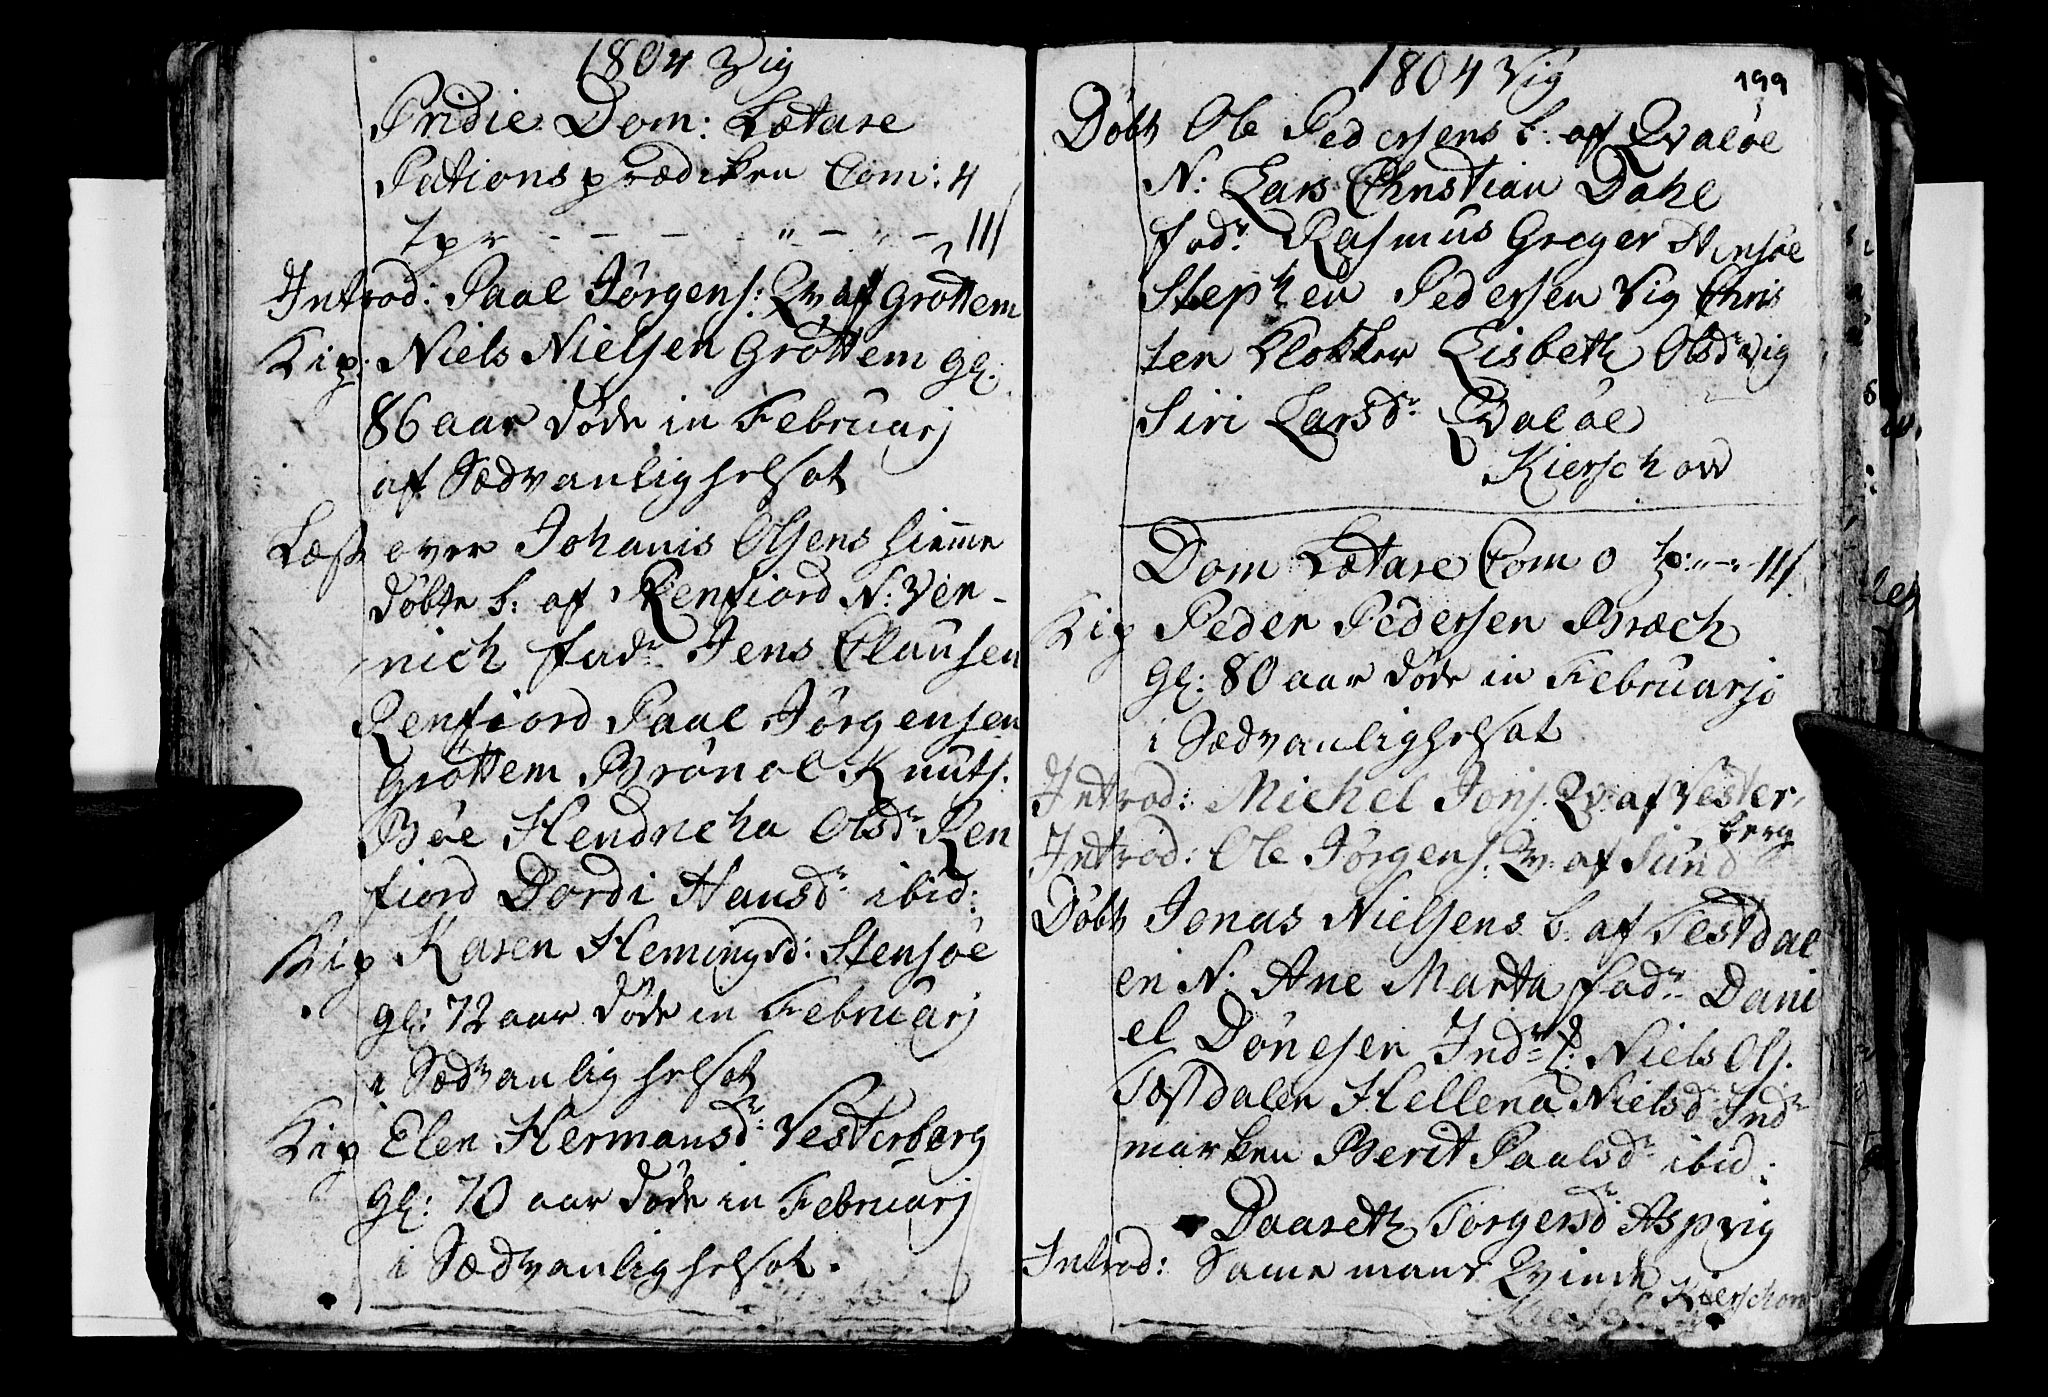 1804 Vig
Pridie Dom: Lætare
Pationsprædiken Com: 4
tpr - - - - " - " - 111
Introd: Paal Jørgens: Qv: af Grøttem
Kip: Niels Nielsen Grøttem gl:
86 aar døde in Februarj
af Sædvanlig helsot
Læst over Johanis Olsens hiemme
døbte b: af Renfiord N: Ver-
nich fadr Jens Clausen
Renfiord Paal Jørgensen
Grøttem Brønel Knuts:
Bøe Hendricha Olsdr Ren
fiord Dordi Hansdr ibid:
Kip Karen Hemingsd: Stensøe
gl: 72 aar døde in Februarj
i Sædvanlig helsot
Kip Elen Hermansdr Vesterberg
gl: 70 aar døde in Februarj
i Sædvanlig helsot.
1804 Vig
199
Døbt Ole Pedersens b: af Qvaløe
N: Lars Christian Dahl
fadr Rasmus Greger Stensøe
Stephen Pedersen Vig Chris
ten Klokker Lisbeth Olsdr Vig
Siri Larsdr Qvaløe
Kierschow
Dom Lætare Com 0 tp: " - " - 111
Kip Peder Pedersen Bræch
gl: 80 aar døde in Februarjo
i Sædvanlighelsot
Introd: Michel Jons: Qv: af Vester,
berg
Introd: Ole Jørgens: Qv: af Sund
Døbt Jonas Nielsens b. af Testdal
en N: Ane Marta fadr Dani
el Dønesen Indr Niels Ols:
Tæstdalen Hellena Nielsdr Indr
marken Berit Paalsdr ibid:
Daareth Torgersdr Aspvig
Introd: Same mans Qvinde
Kierschow